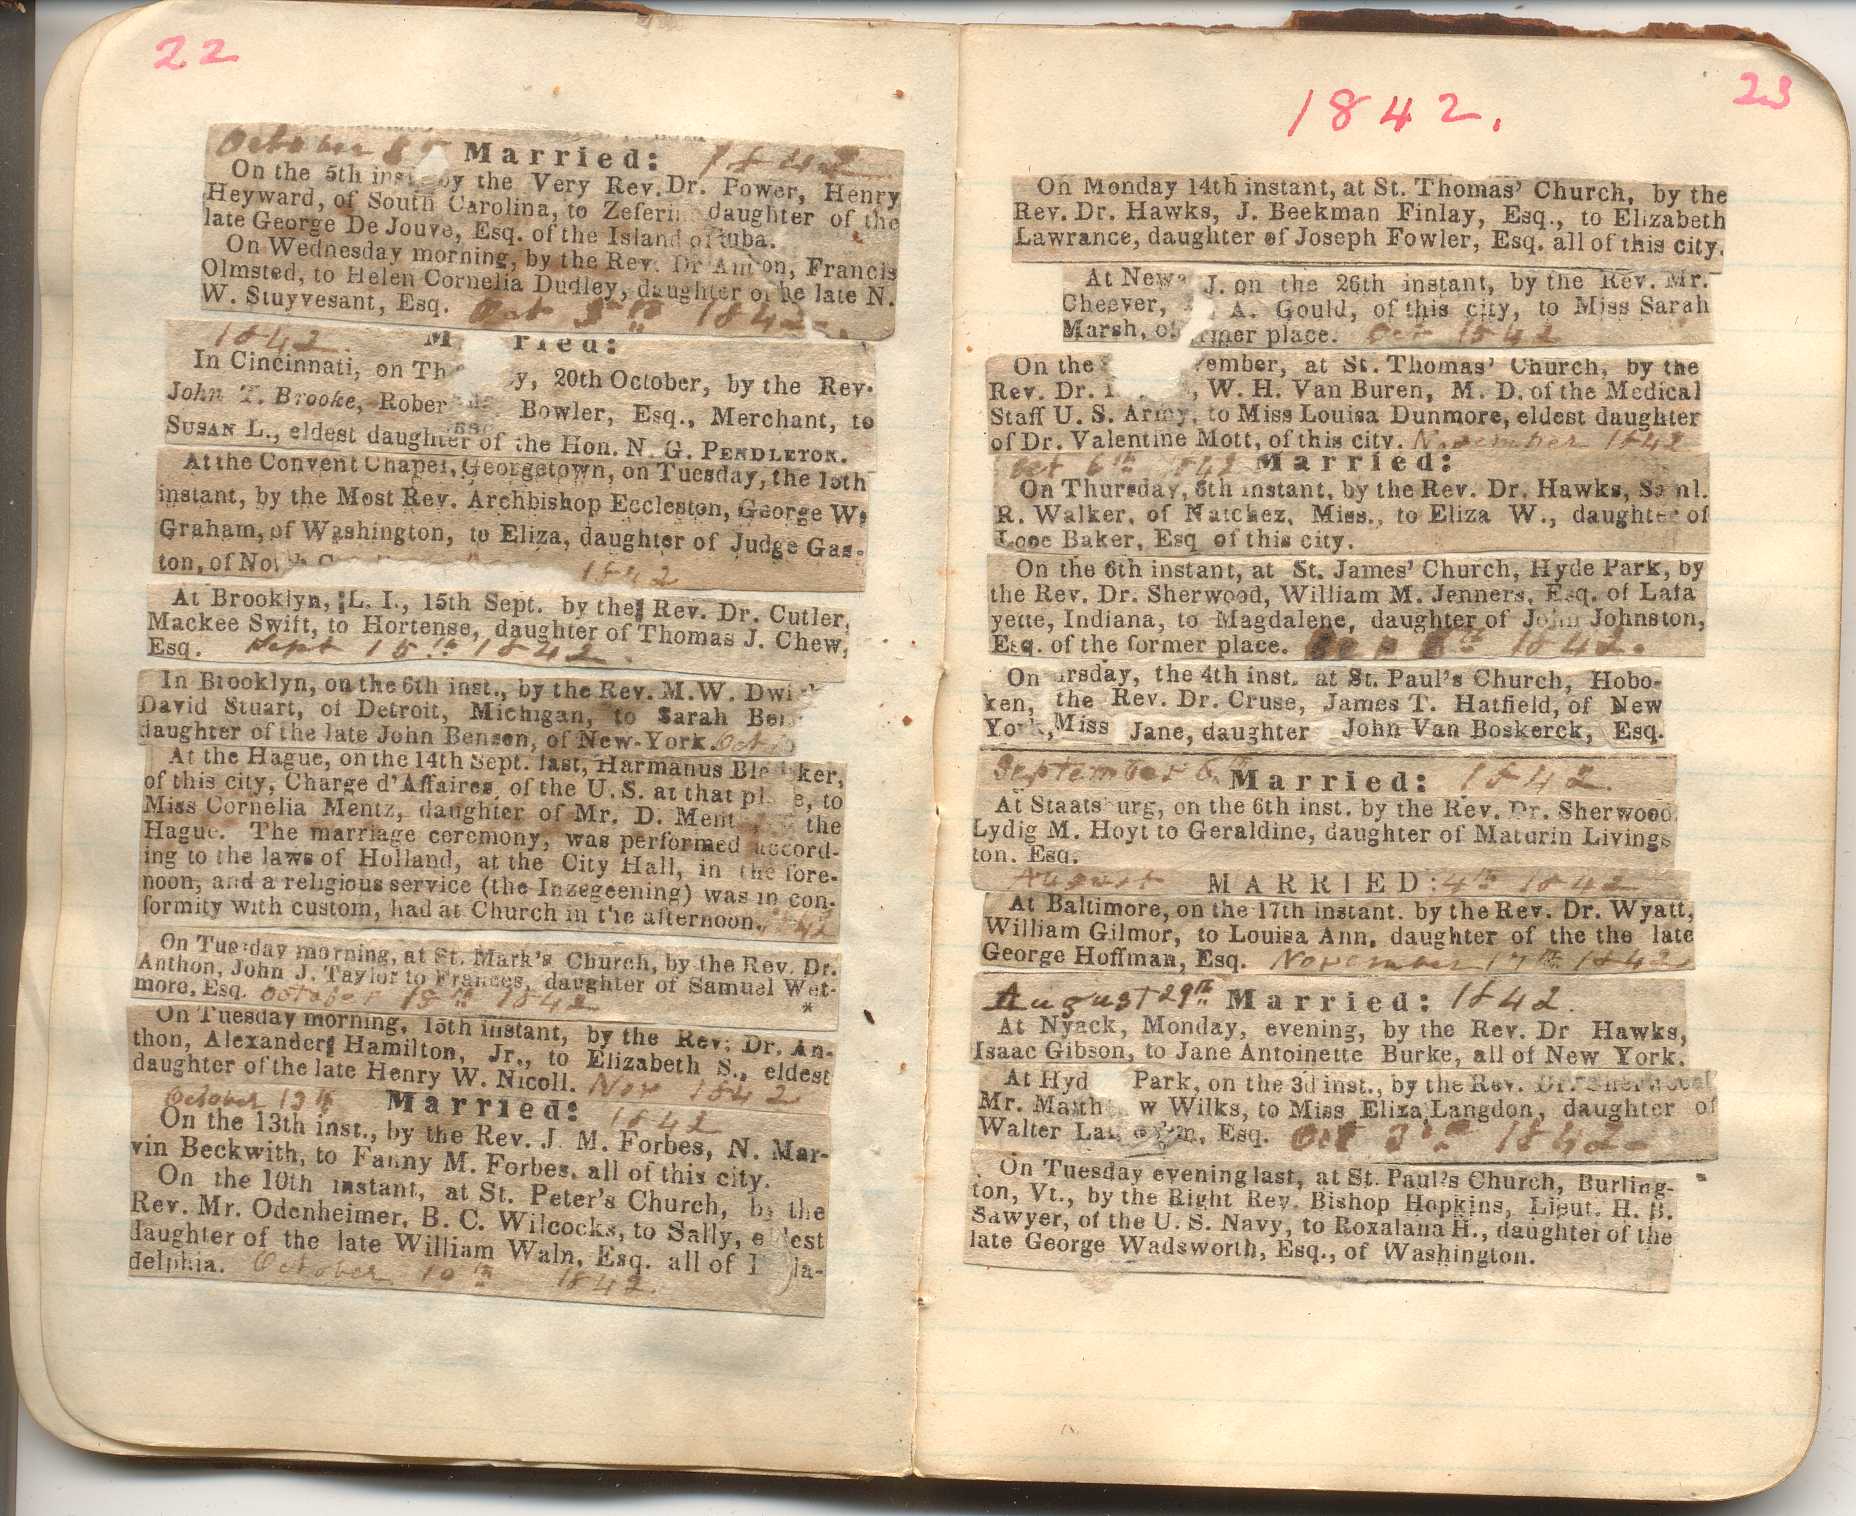 22
October 8 Married: 1842
On the 5th inst by the Very Rev. Dr. Power, Henry
Heyward, of South Carolina, to Zeferi daughter of the
late George De Jouve, Esq. of the Island of uba.
On Wednesday morning, by the Rev. Dr An on, Francis
Olmsted, to Helen Cornelia Dudley, daughter of he late N.
W. Stuyvesant, Esq. Oct 1842.
1842. M ried:
In Cincinnati, on Th y, 20th October, by the Rev.
John T. Brooke, Rober Bowler, Esq., Merchant, to
SUSAN L., eldest daughter of the Hon. N. G. PENDLETON.
At the Convent Chapel, Georgetown, on Tuesday, the 15th
instant, by the Most Rev. Archbishop Eccleston, George W.
Graham, of Washington, to Eliza, daughter of Judge Gas-
ton, of No 1842
At Brooklyn, L. I., 15th Sept. by the Rev. Dr. Cutler,
Mackee Swift, to Hortense, daughter of Thomas J. Chew,
Esq. Sept 15th 1842.
In Brooklyn, on the 6th inst., by the Rev. M. W. Dwi
David Stuart, of Detroit, Michigan, to Sarah Be
daughter of the late John Benson, of New-York. Oct
At the Hague, on the 14th Sept. last, Harmanus Ble ker,
of this city, Charge d'Affaires of the U. S. at that pl e, to
Miss Cornelia Mentz, daughter of Mr. D. Ment the
Hague. The marriage ceremony, was performed accord-
ing to the laws of Holland, at the City Hall, in the fore-
noon, and a religious service (the Inzegeening) was in con-
formity with custom, had at Church in the afternoon. 42
On Tuesday morning, at St. Mark's Church, by the Rev. Dr.
Anthon, John J. Taylor to Frances, daughter of Samuel Wet-
more, Esq. October 18th 1842 *
On Tuesday morning, 15th instant, by the Rev. Dr. An-
thon, Alexander Hamilton, Jr., to Elizabeth S., eldest
daughter of the late Henry W. Nicoll. Nov 1842
October 13th Married: 1842
On the 13th inst., by the Rev. J. M. Forbes, N. Mar-
vin Beckwith, to Fanny M. Forbes, all of this city.
On the 10th instant, at St. Peter's Church, by the
Rev. Mr. Odenheimer, B. C. Wilcocks, to Sally, eldest
daughter of the late William Waln, Esq. all of la-
delphia. October 10th 1842.
23
1842.
On Monday 14th instant, at St. Thomas' Church, by the
Rev. Dr. Hawks, J. Beekman Finlay, Esq., to Elizabeth
Lawrance, daughter of Joseph Fowler, Esq. all of this city.
At Newa J. on the 26th instant, by the Rev. Mr.
Cheever, A. Gould, of this city, to Miss Sarah
Marsh, of rmer place. Oct 1842
On the vember, at St. Thomas' Church, by the
Rev. Dr. , W. H. Van Buren, M. D. of the Medical
Staff U. S. Army, to Miss Louisa Dunmore, eldest daughter
of Dr. Valentine Mott, of this city. November 1842
Oct 6th 1842 Married:
On Thursday, 6th instant, by the Rev. Dr. Hawks, Saml.
R. Walker, of Natchez, Miss., to Eliza W., daughter of
Looe Baker, Esq of this city.
On the 6th instant, at St. James' Church, Hyde Park, by
the Rev. Dr. Sherwood, William M. Jenners, Esq. of Lafa
yette, Indiana, to Magdalene, daughter of John Johnston,
Esq. of the former place. 6th 1842.
On ursday, the 4th inst. at St. Paul's Church, Hobo-
ken, the Rev. Dr. Cruse, James T. Hatfield, of New
York, Miss Jane, daughter John Van Boskerck, Esq.
September 6th Married: 1842.
At Staatsburg, on the 6th inst. by the Rev. Dr. Sherwood
Lydig M. Hoyt to Geraldine, daughter of Maturin Livings
ton. Esq.
August MARRIED: 4th 1842
At Baltimore, on the 17th instant. by the Rev. Dr. Wyatt,
William Gilmor, to Louisa Ann, daughter of the the late
George Hoffman, Esq. November 17th 1842
August 29th Married: 1842.
At Nyack, Monday, evening, by the Rev. Dr Hawks,
Isaac Gibson, to Jane Antoinette Burke, all of New York.
At Hyd Park, on the 3d inst., by the Rev. Dr. Sherwood
Mr. Matth w Wilks, to Miss Eliza Langdon, daughter of
Walter La n, Esq. Oct 3 1842.
On Tuesday evening last, at St. Paul's Church, Burling-
ton, Vt., by the Right Rev. Bishop Hopkins, Lieut. H. B.
Sawyer, of the U. S. Navy, to Roxalana H., daughter of the
late George Wadsworth, Esq., of Washington.